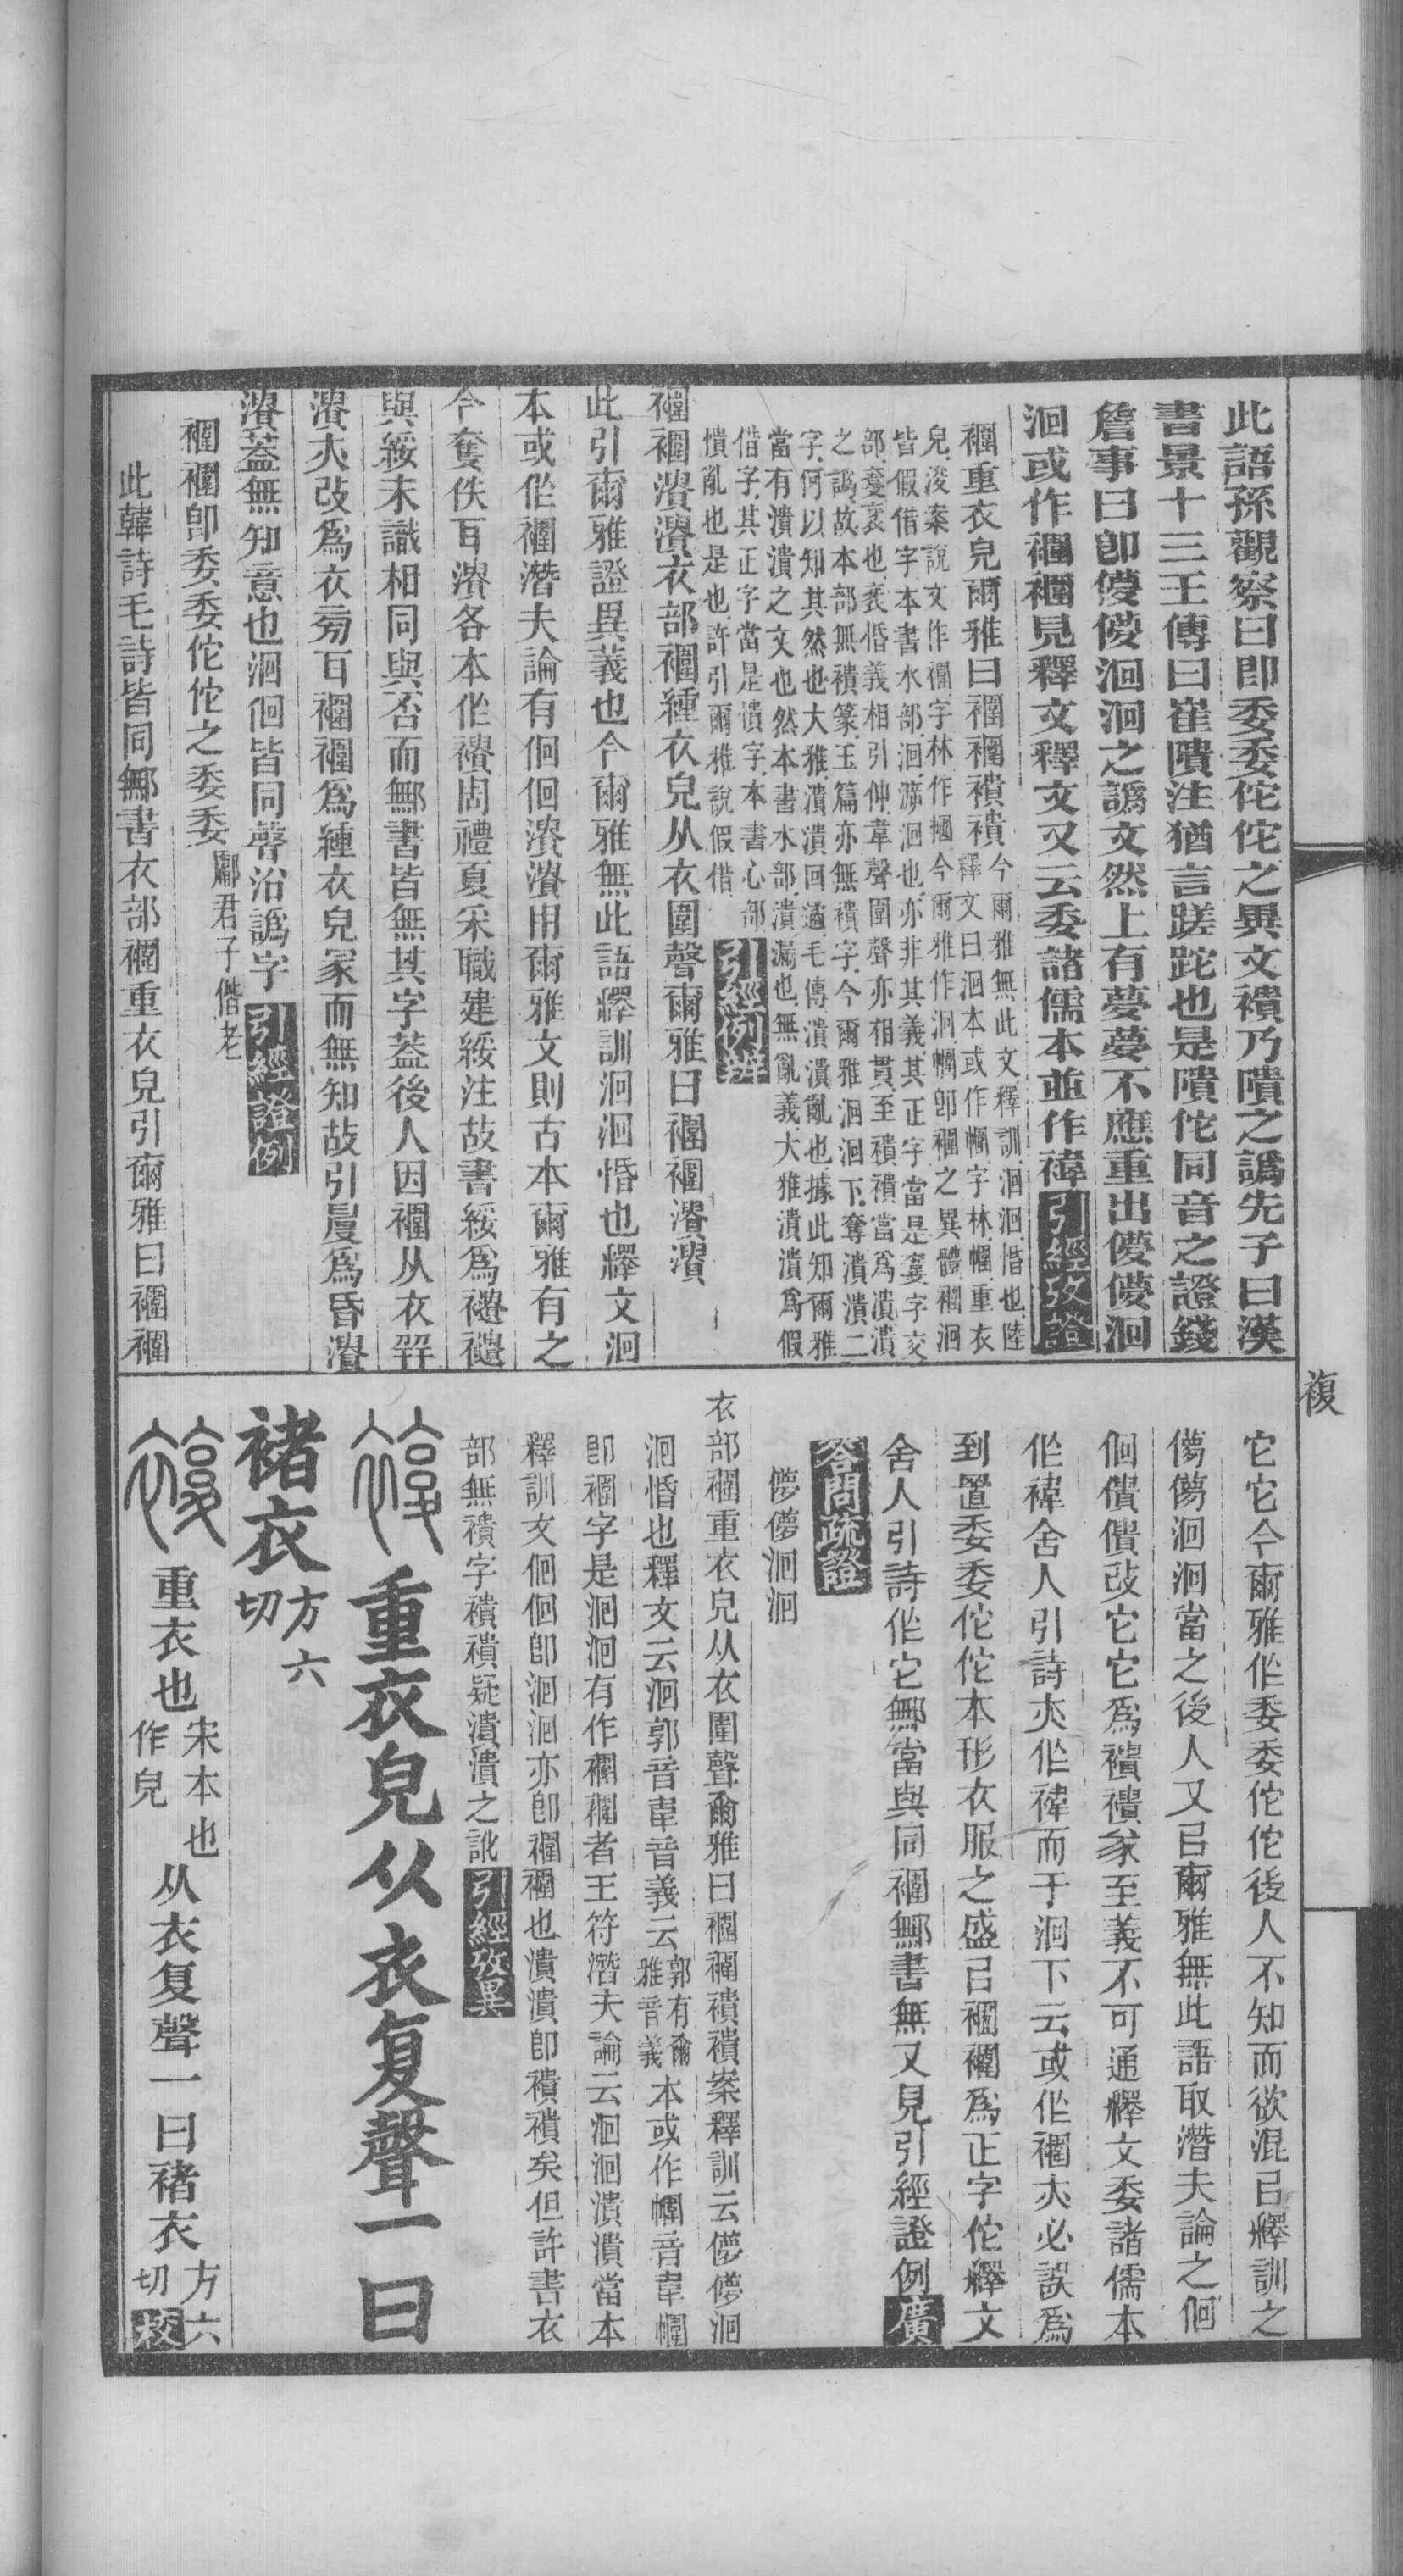 此語孫觀察曰即委委佗佗之異文䙡乃隤之譌先子曰漢
書景十三王傳曰崔隤注猶言蹉跎也是隤佗同音之證錢
詹事曰卽儚儚洄洄之譌文然上有夢夢不應重出儚儚洄
洄或作褍褍見釋文釋文又云委諸儒本並作褘引經攷證
𧝕重衣皃爾雅曰𧝕𧝕䙡䙡
今爾雅無此文釋訓洄洄惛也陸
釋文曰洄本或作㡡字林㡡重衣
皃浚案說文作𧝕字林作㡡今爾雅作洄㡡卽𧝕之異體𧝕洄
皆假借字本書水部洄㴑洄也亦非其義其正字當是㚇字交
部㚇衺也衺惛義相引伸韋聲圍聲亦相貫至䙡䙡當爲潰潰
之譌故本部無䙡篆玉篇亦無䙡字今爾雅洄洄下奪潰潰二
字何以知其然也大雅潰潰回遹毛傳潰潰亂也據此知爾雅
當有潰潰之文也然本書水部潰漏也無亂義大雅潰潰爲假
借字其正字當是憒字本書心部
憒亂也是也許引爾雅說假借
引經例辨
𧝕𧝕濻濻衣部𧝕緟衣皃从衣圍聲爾雅曰𧝕𧝕濻濻
此引爾雅證異義也今爾雅無此語釋訓洄洄惛也釋文洄
本或作𧝕潛夫論有佪佪濻濻用爾雅文則古本爾雅有之
今奪佚耳濻各本作䙡周禮夏采職建綏注故書綏爲䙡䙡
與綏未識相同與否而鄦書皆無其字蓋後人因𧝕从衣幷
濻亦改爲衣㫄耳𧝕𧝕爲緟衣皃冡而無知故引𢑥爲昏濻
濻蓋無知意也洄佪皆同聲沿譌字引經證例
𧝕𧝕卽委委佗佗之委委鄘君子偕老
此韓詩毛詩皆同鄦書衣部𧝕重衣皃引爾雅曰𧝕𧝕
複
它它今爾雅作委委佗佗後人不知而欲混㠯釋訓之
儚儚洄洄當之後人又㠯爾雅無此語取潛夫論之佪
佪僓僓改它它爲䙡䙡冡至義不可通釋文委諸儒本
作褘舍人引詩亦作褘而于洄下云或作𧝕亦必誤爲
到置委委佗佗本形衣服之盛㠯𧝕𧝕爲正字佗釋文
舍人引詩作它鄦當與同𧝕鄦書無又見引經證例廣
答問疏證
儚儚洄洄
衣部𧝕重衣皃从衣圍聲爾雅曰𧝕𧝕䙡䙡案釋訓云儚儚洄
洄惛也釋文云洄郭音韋音義云郭有爾雅音義本或作㡡音韋㡡
卽𧝕字是洄洄有作𧝕𧝕者王符潛夫論云洄洄潰潰當本
釋訓文佪佪卽洄洄亦卽𧝕𧝕也潰潰卽䙡䙡矣但許書衣
部無䙡字䙡䙡疑潰潰之訛引經攷異
重衣皃从衣复聲一曰
褚衣方六切
重衣也宋本也作皃从衣复聲一曰褚衣方六切校